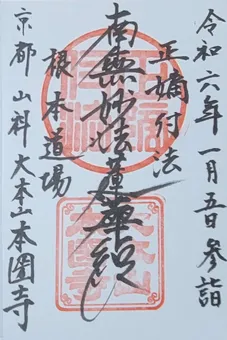 令和六年一月五日参詣
正嫡付法
南無妙法蓮華経
根本道場
京都 山科 大本山本圀寺